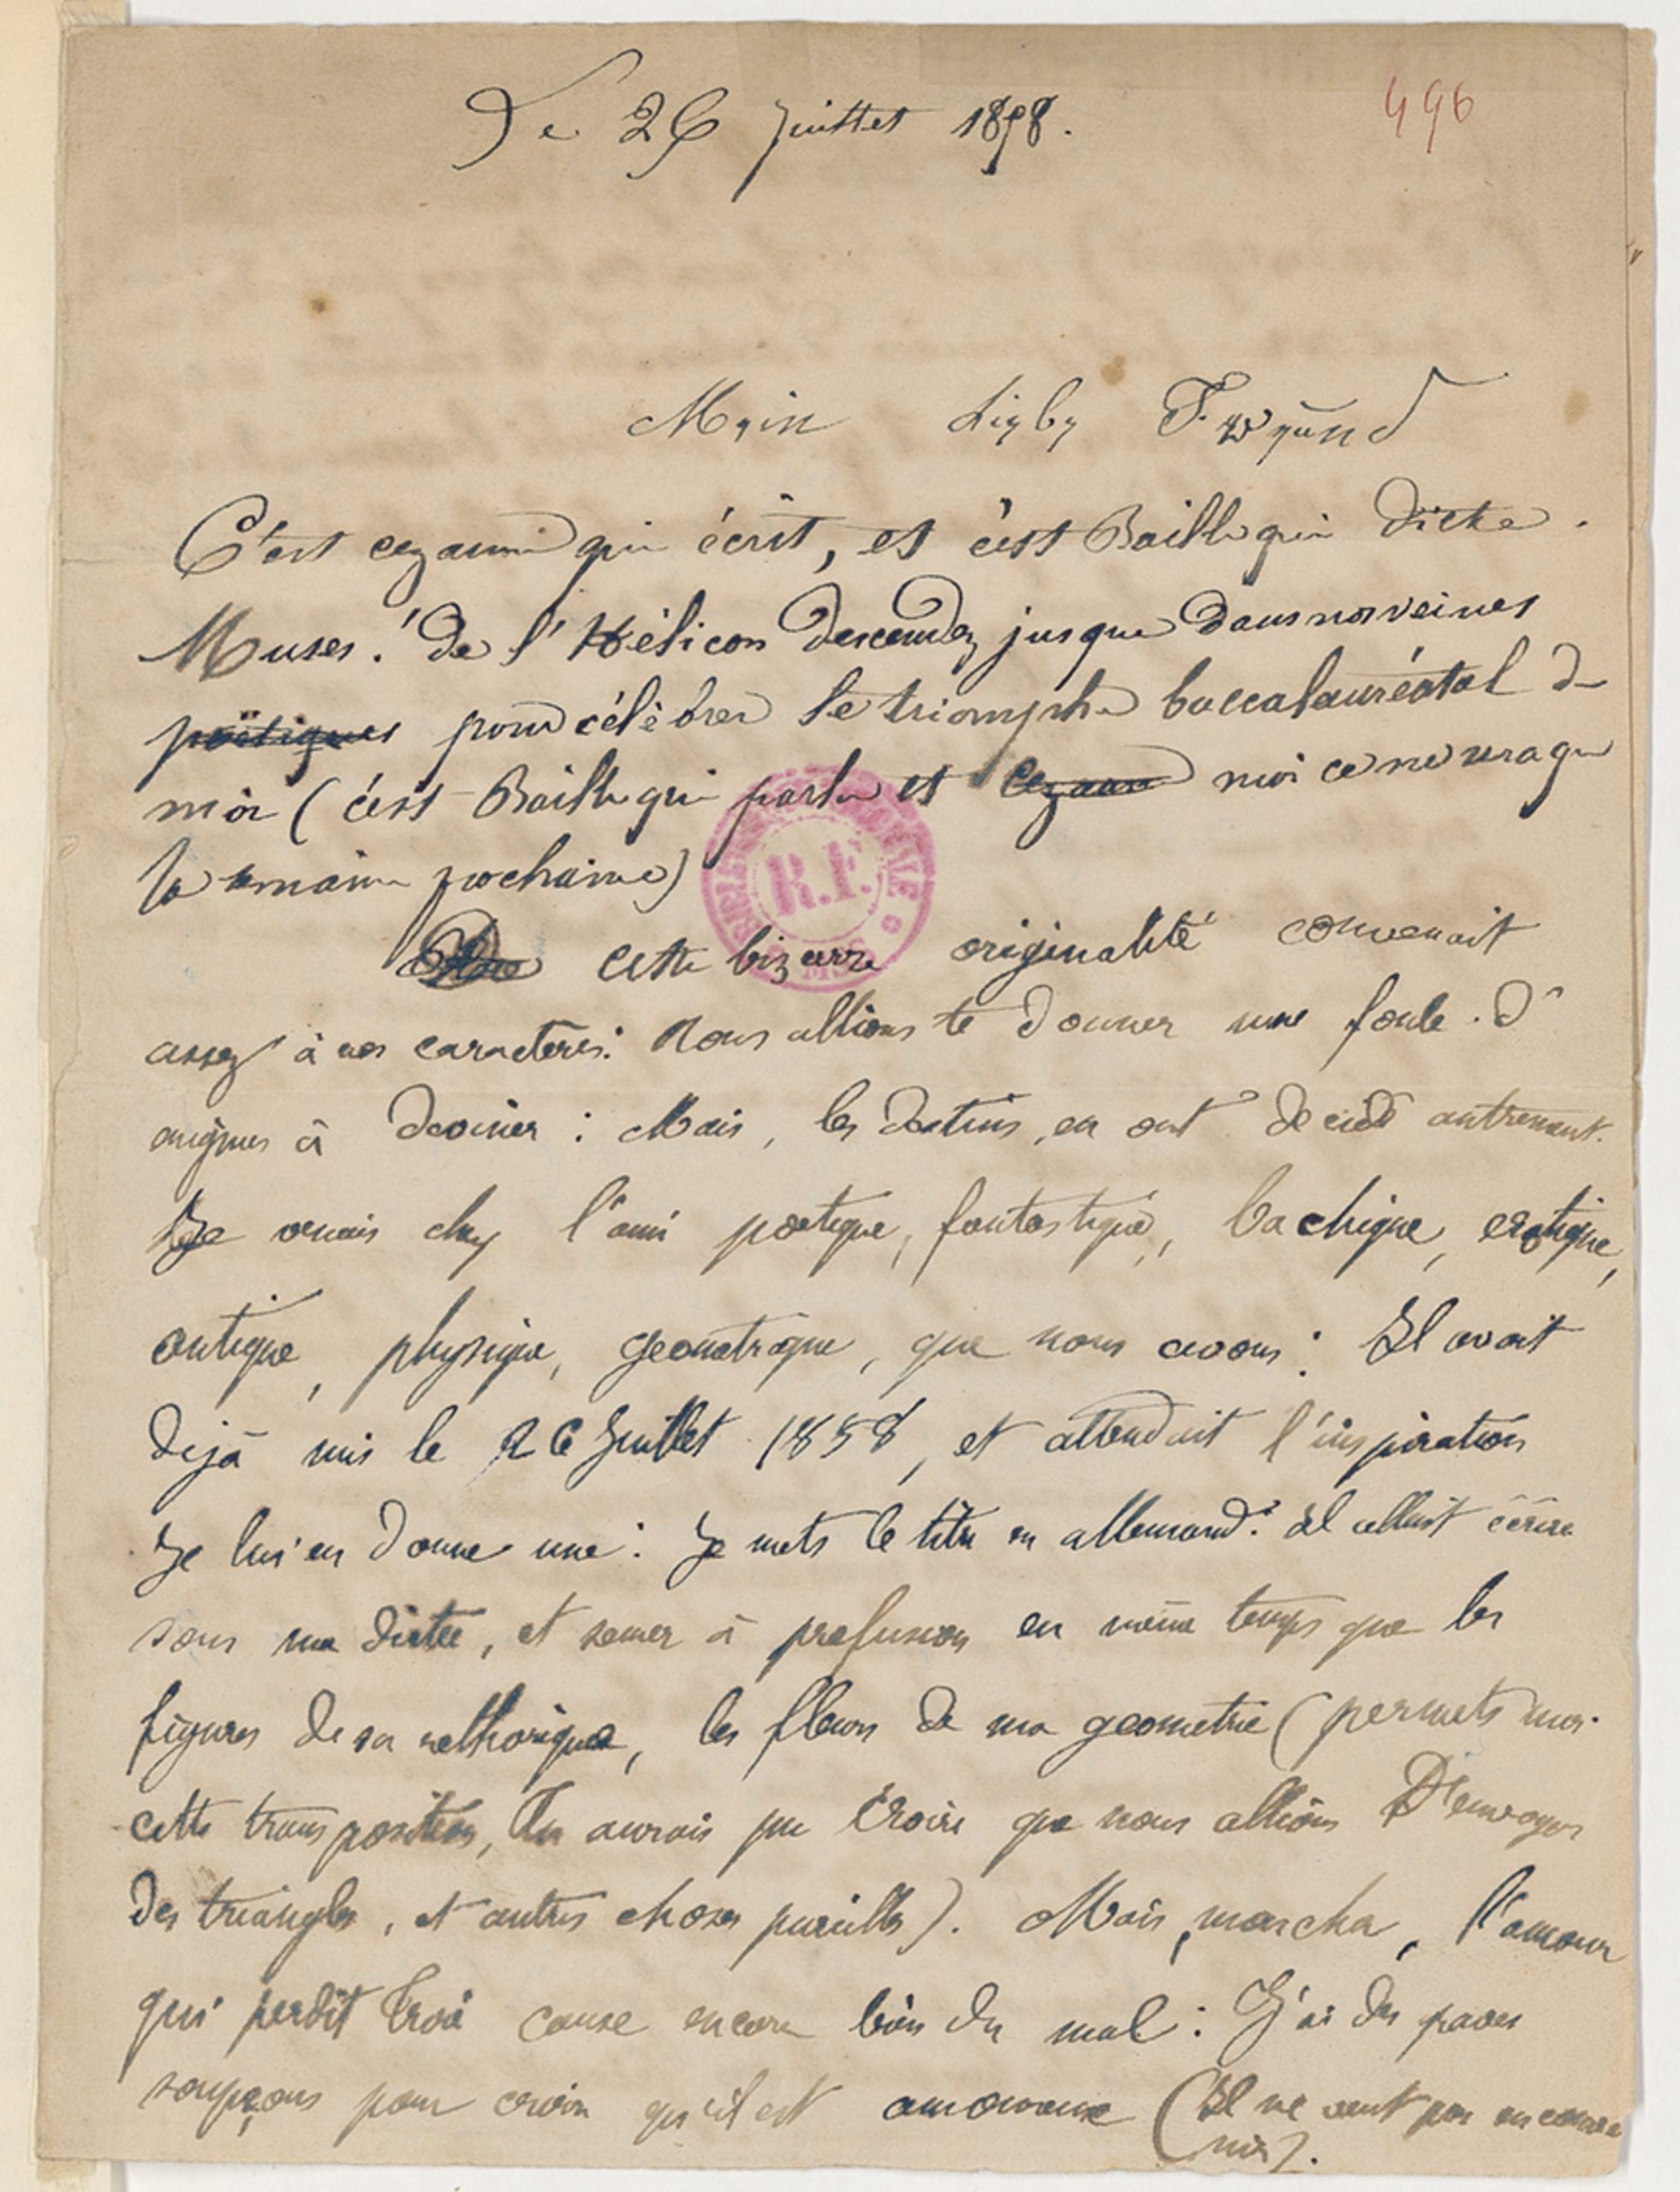 Le 26 Juillet 1858.
496
Myin Liyby Frŷund
C'est cezanne qui écrit, et c'est Baille qui dicte.
Muses! de l'Hélicon descendez jusque dans nos veines
poëtiques pour célébrer le triomphe baccalauréatal de
moi (c'est Baille qui parle et Cezanne moi ce ne sera que
la semaine prochaine)
cette bizarre originalité convenait
assez à nos caracteres: nous allions te donner une foule d'
enigmes à deviner: Mais, les destins en ont decidé autrement.
Je venais chez l'ami poetique, fantastique, bachique, erotique,
antique, physique, geometrique, que nous avons: Il avait
dejà mis le 26 Juillet 1858, et attendait l'inspiration
Je lui en donne une: Je mets le titre en allemand: il allait écrire
sous ma dictée, et semer à profusion en même temps que les
figures de sa rethorique, les fleurs de ma geometrie (permets moi
cette transposition, Tu aurais pu croire que nous allions t'envoyer
des triangles, et autres choses pareilles). Mais, mon cher, l'amour
qui perdit Troie cause encore bien du mal: J'ai de graves
soupçons pour croire qu'il est amoureux (Il ne veut pas en conve
nir).
R.F.
MSS